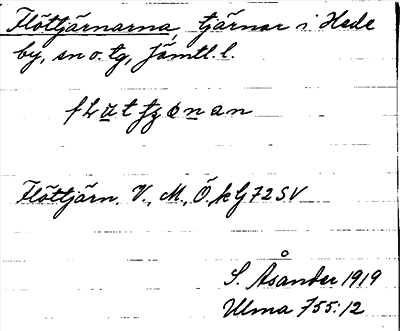 Flöttjärnarna, tjärnar i Hede
by, sn o. tg, Jämtl. l.
Flöttjärn, V., M., Ö. kG72SV
S. Åsander 1919
Ulma 755:12